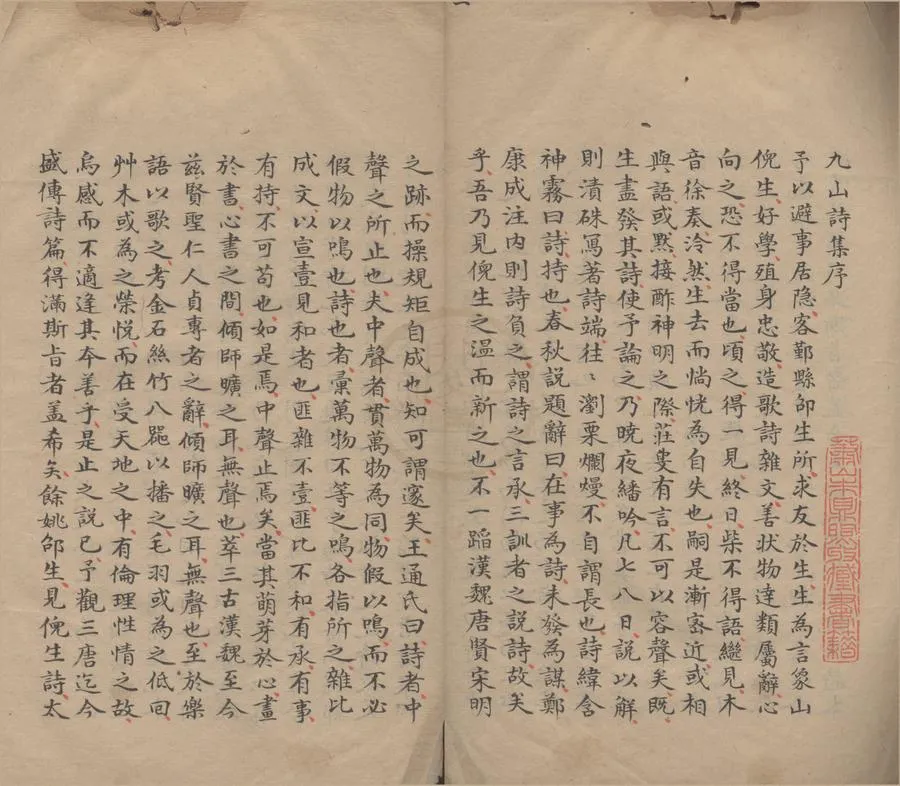 九山詩集序
予以避事居隐客鄞縣邵生所求友於生生為言象山
倪生好學殖身忠敬造歌詩雜文善状物達類屬辭心
向之恐不得當也頃之得一見終日柴不得語繼見木
音徐奏泠然生去而惝恍為自失也嗣是漸宻近或相
與語或默接酢神明之際莊叟有言不可以容聲矣既
生盡發其詩使予論之乃曉夜繙吟凡七八日說以解
則漬硃寫著詩端往〻瀏栗爛熳不自謂長也詩緯含
神霧曰詩持也春秋説題辭曰在事為詩未發為謀鄭
康成注内則詩負之謂詩之言承三訓者之説詩故矣
乎吾乃見倪生之温而新之也不一蹈漢魏唐賢宋明
之跡而操規矩自成也知可謂邃矣王通氏曰詩者中
聲之所止也夫中聲者貫萬物為同物假以鳴而不必
假物以鳴也詩也者彙萬物不等之鳴各指所之雜比
成文以宣壹見和者也匪雜不壹匪比不和有承有事
有持不可苟也如是焉中聲止焉矣當其萌芽於心畫
於書心書之間傾師曠之耳無聲也萃三古漢魏至今
兹賢聖仁人貞專者之辭傾師曠之耳無聲也至於樂
語以歌之考金石絲竹八噐以播之毛羽或為之低回
艸木或為之榮悦而在受天地之中有倫理性情之故
烏感而不適逢其夲善乎是止之説已予觀三唐迄今
盛傳詩篇得滿斯旨者盖希矣餘姚邵生見倪生詩太